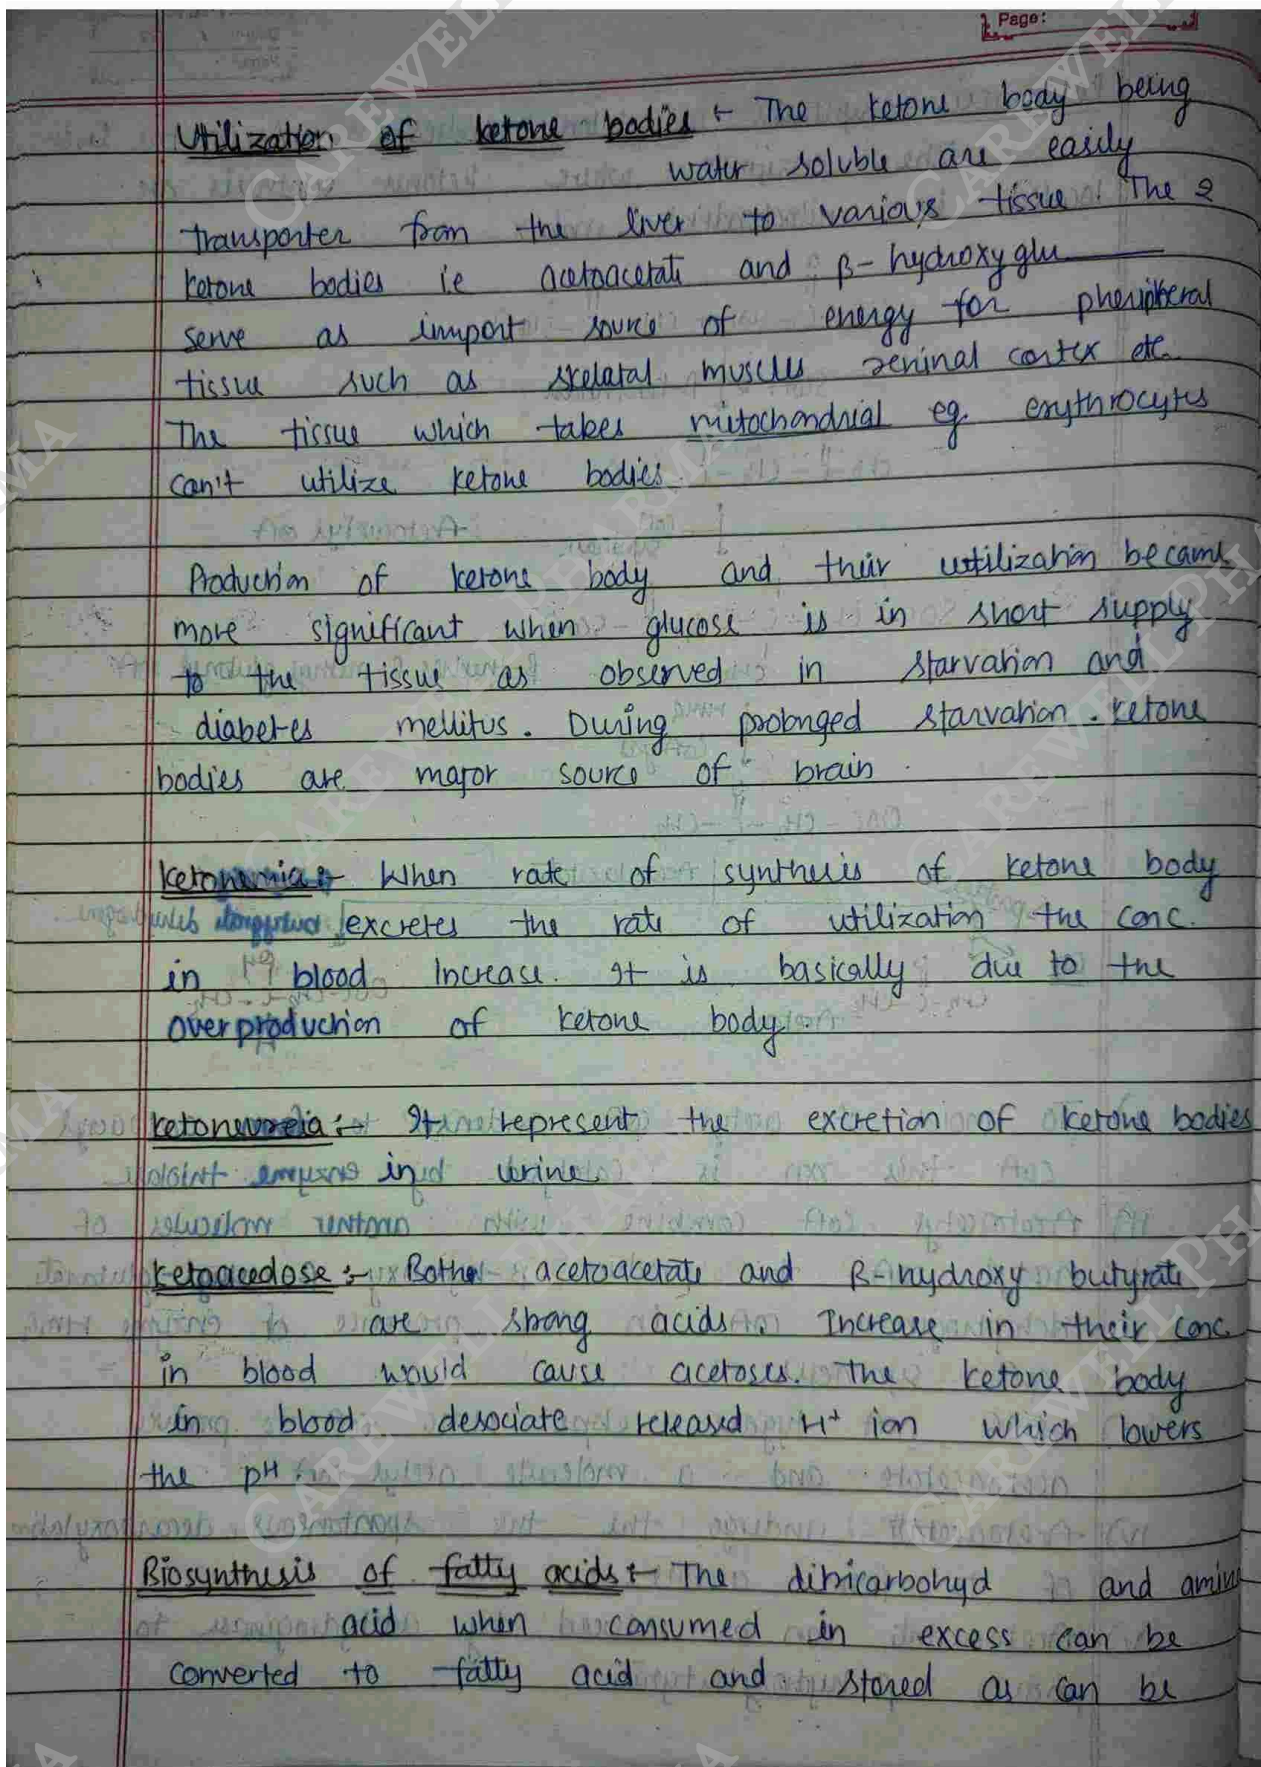 Page:
Utilization of ketone bodies :- The ketone body being
water soluble are easily
transporter from the liver to various tissue. The 2
ketone bodies i.e acetoacetate and β-hydroxy glu
serve as import source of energy for pheripheral
tissue such as skelatal muscles reninal cortex etc.
The tissue which takes mitochandrial eg. erythrocytes
can't utilize ketone bodies.
Production of ketone body and their utilization became
more significant when glucose is in short supply
to the tissue as observed in starvation and
diabetes mellitus. During prolonged starvation. ketone
bodies are major source of brain.
ketonemia :- When rate of synthesis of ketone body
excretes the rate of utilization the conc.
in blood increase. It is basically due to the
overproduction of ketone body.
ketoneureia :- It represent the excretion of ketone bodies
in urine
ketoacedose :- Both acetoacetate and β-hydroxy butyrate
are strong acids. Increase in their conc.
in blood would cause acetoses. The ketone body
in blood desociate released H+ ion which lowers
the pH.
Biosynthesis of fatty acids :- The dibicarbohyd and amino
acid when consumed in excess can be
converted to fatty acid and stored as can be
CAREWELL PHARMA